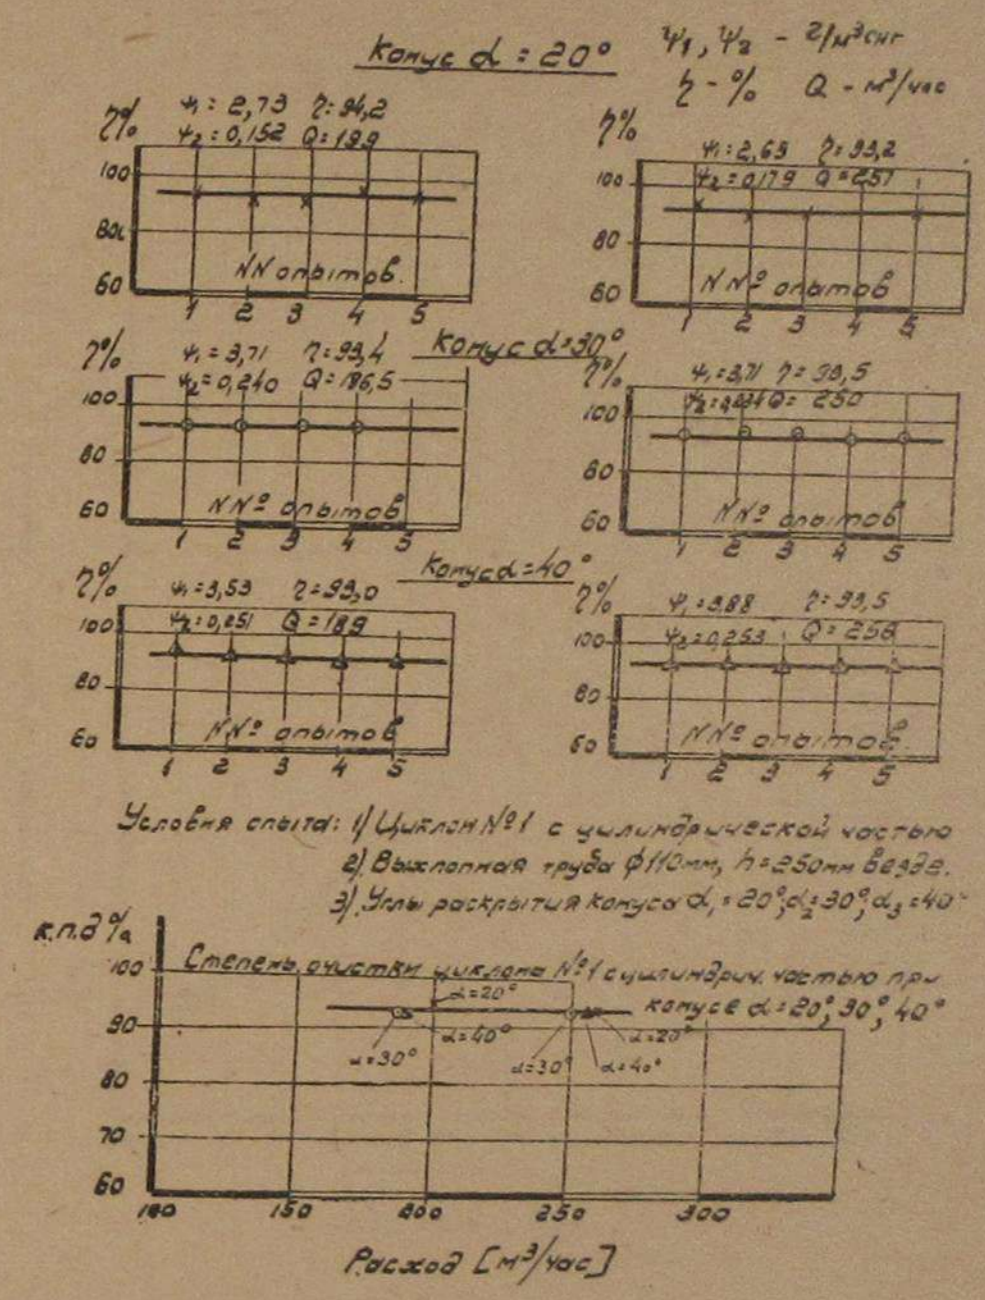 Конус α = 20°
Ψ₁, Ψ₂ - г/м³снг
η - % Q - м³/час
η% Ψ₁ = 2,73 η = 94,2
Ψ₂ = 0,152 Q = 199
100
80
60
NN опытов.
1 2 3 4 5
η% Ψ₁ = 2,69 η = 93,2
Ψ₂ = 0,179 Q = 257
100
80
60
NNº опытов
1 2 3 4 5
Конус α = 30°
η% Ψ₁ = 3,71 η = 93,4
Ψ₂ = 0,240 Q = 186,5
100
80
60
NNº опытов
1 2 3 4 5
η% Ψ₁ = 3,71 η = 93,5
Q = 250
100
80
60
NNº опытов
1 2 3 4 5
Конус α = 40°
η% Ψ₁ = 3,53 η = 93,0
Ψ₂ = 0,251 Q = 189
100
80
60
NNº опытов
1 2 3 4 5
η% Ψ₁ = 3,88 η = 93,5
Ψ₂ = 0,253 Q = 256
100
80
60
NNº опытов.
1 2 3 4 5
Условия опыта: 1) Циклон №1 с цилиндрической частью
2). Выхлопная труба ф110мм, h = 250мм везде.
3). Углы раскрытия конуса α₁ = 20°; α₂ = 30°; α₃ = 40°
к.п.д %
Степень очистки циклона №1 с цилиндрич. частью при
конусе α = 20°, 30°, 40°
α = 20°
α = 40°
α = 30°
α = 20°
α = 30°
α = 40°
100
90
80
70
60
100 150 200 250 300
Расход [м³/час]